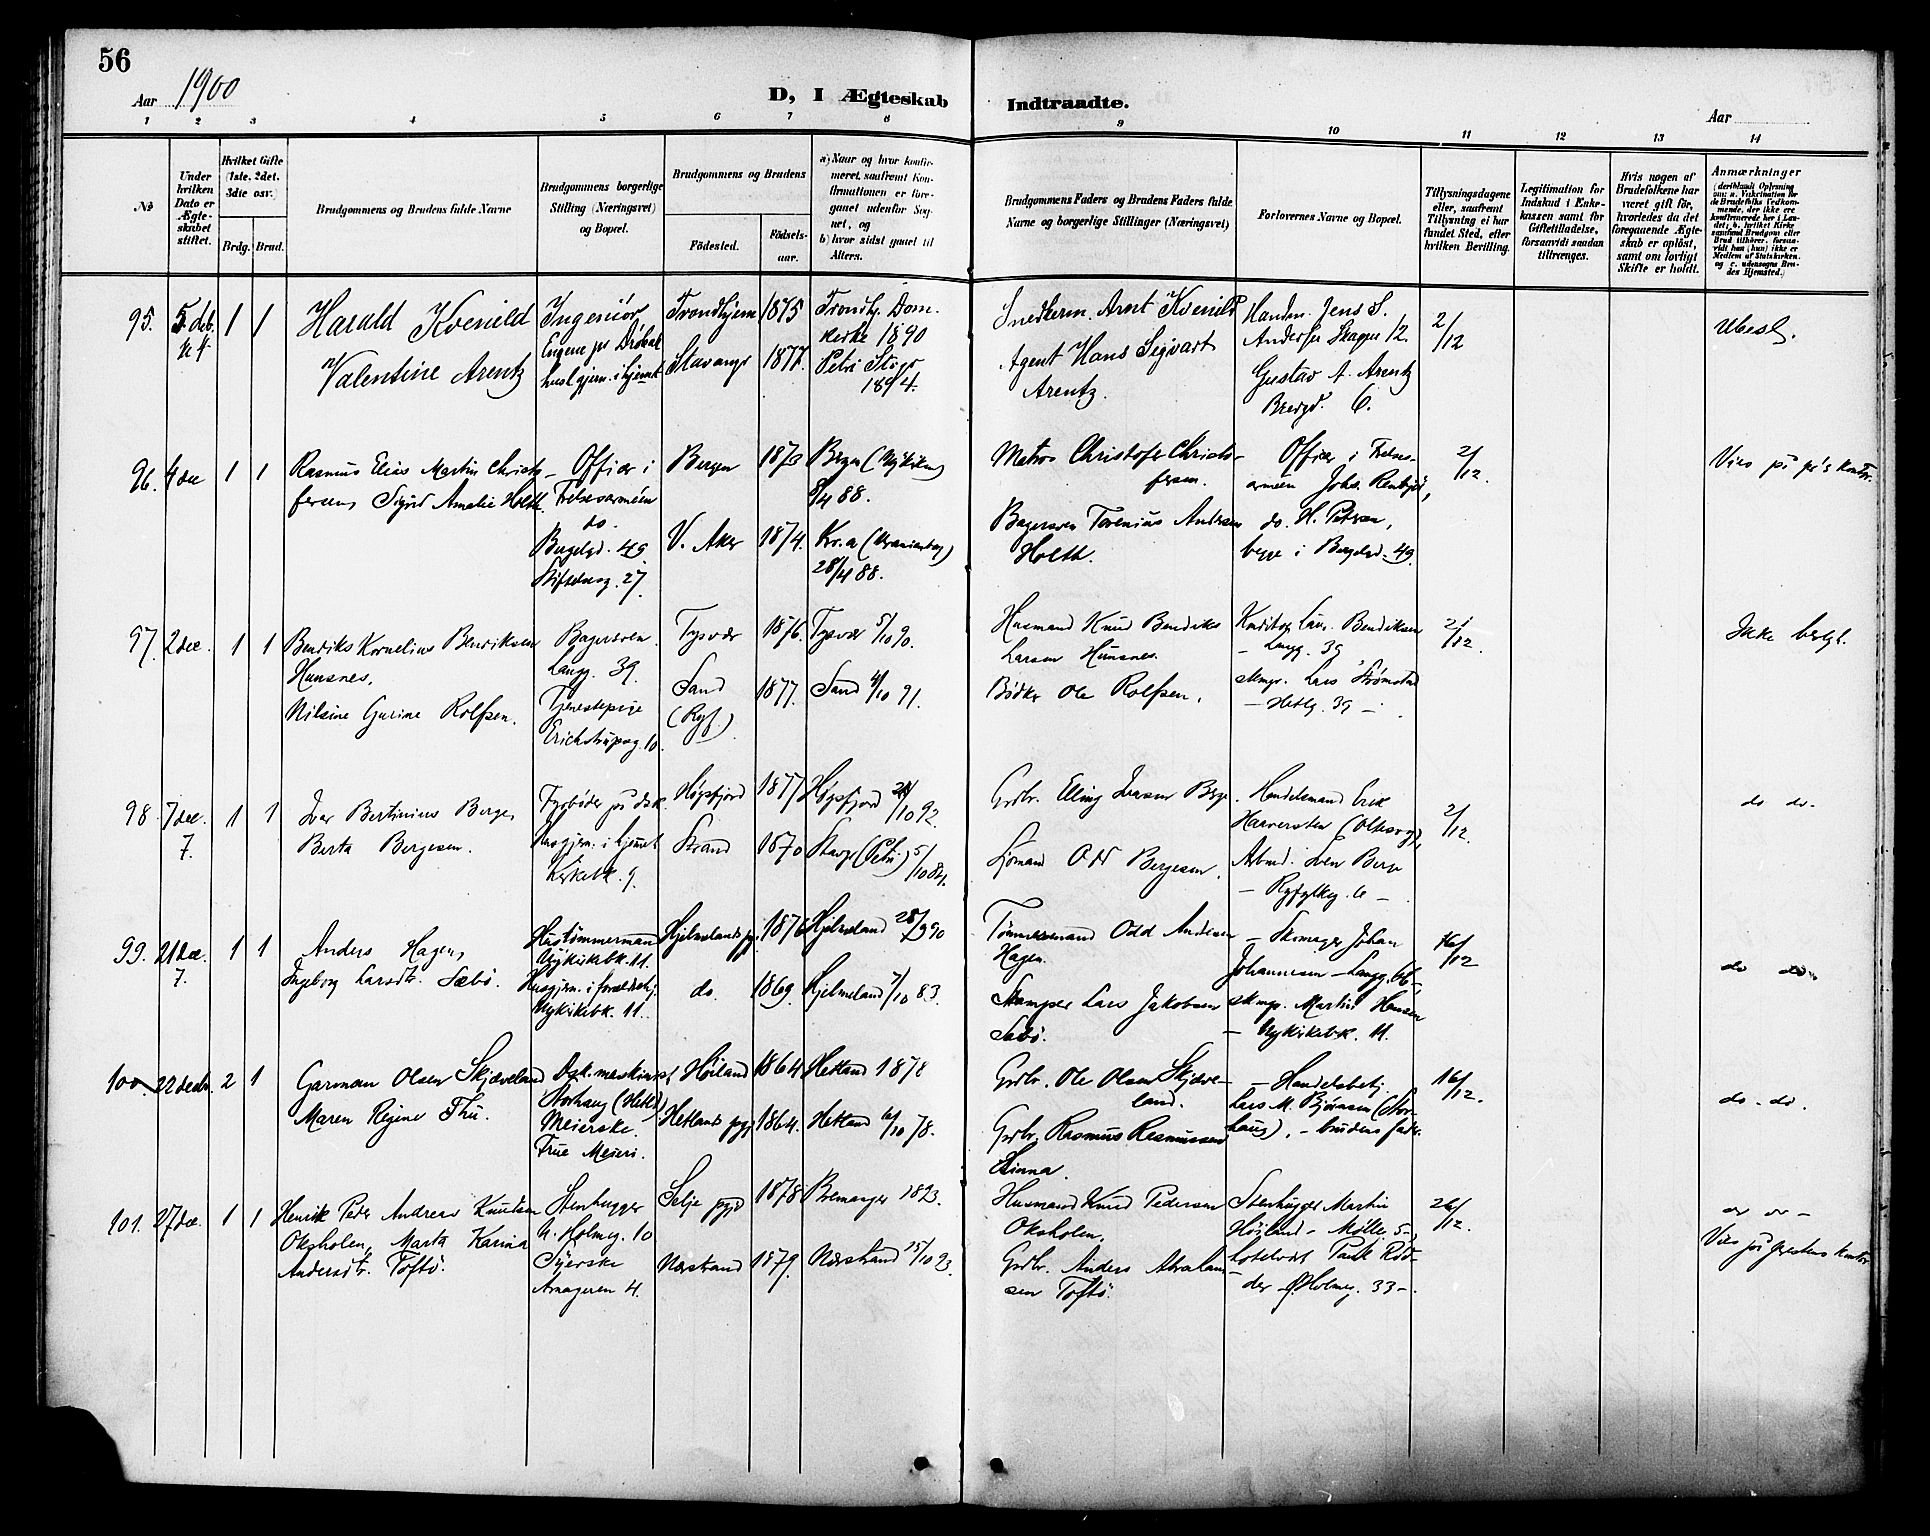 56
Aar 1900
D, I Ægteskab Indtraadte.
Aar
1 2 3 4 5 6 7 8 9 10 11 12 13 14
No
Under hvilken Dato er Ægteskabet stiftet.
Hvilket Gifte (1ste, 2det, 3die osv.)
Brdg. Brud.
Brudgommens og Brudens fulde Navne
Brudgommens borgerlige Stilling (Næringsvei) og Bopæl.
Brudgommens og Brudens
Födested.
Födselsaar.
a) Naar og hvor konfirmeret, saafremt Konfirmationen er foregaaet udenfor Sognet, og
b) hvor sidst gaaet til Alters.
Brudgommens Faders og Brudens Faders fulde Navne og borgerlige Stillinger (Næringsvei)
Forlovernes Navne og Bopæl.
Tillysningsdagene eller, saafremt Tillysning ei har fundet Sted, efter hvilken Bevilling.
Legitimation for Indskud i Enkekassen samt for Giftetilladelse, forsaavidt saadan tiltrænges.
Hvis nogen af Brudefolkene har været gift för, hvorledes da det foregaaende Ægteskab er oplöst, samt om lovligt Skifte er holdt.
Anmærkninger
95. 5 deb. 1 1 Harald Kvenild
Valentine Arentz
Ingeniör
Trondhjem 1875 Trondhj. Domkirke 1890
husgjern. i hjemt Stavanger 1877. Petri Stvgr 1894.
Snedkerm. Arnt Kvenild
Agent Hans Sigvart
Arentz.
Handm. Jens S.
Gustav A. Arentz
Bredgd. 6.
2/12
96. 4 dec 1 1 Rasmus Elias Martin Christofersen, Sigrid Amalie Holth.
Officer i
Frelsesarméen
do.
Bergelgd. 49
27.
Bergen 1873 Bergen (Nykirken)
8/4 88.
V. Aker 1874. Kr.a (Uranienborg)
28/4 88.
Matros Christofer Christofersen.
Bagersvend Torenius Andersen
Holth.
Officer i Frelsesarmeen Johs.
do. H. Petersen,
begge i Bergelgd. 49.
2/12.
Viet på pr's kontor.
97. 2 dec. 1 1 Bendiks Kornelius Bendiksen
Hunsnes,
Nilsine Gurine Rolfsen.
Bagersvend
Langg. 39.
Tjenestepige
Erichstrupsg. 10.
Tysvær 1876. Tysvær 5/10 90.
Sand (Ryf.) 1877. Sand 4/10 91.
Husmand Knud Bendiks
Larsen Hunsnes.
Bödker Ole Rolfsen.
Bendiksen
– Langg. 39
Lars Strømstad
– Hetlg. 39 –
2/12.
Ikke besl.
98. 7 dec. 7. 1 1 Ivar Bertinius Berge,
Berta Bergesen.
Fyrböder på dsk.
Husgjern. i hjemmet
Kirkebk. 9.
Høgsfjord 1877 Høgsfjord /10 92.
Strand 1870 Stavgr (Petri) 5/10 84.
Grdbr. Elling Iversen Berge.
Sjømand Odd Bergesen.
Handelsmand Erik
Arbmd. Sven Berge
– Ryfylkeg. 6 –
2/12.
do do.
99. 21 dec. 7. 1 1 Anders Hagen,
Ingeborg Larsdtr. Sæbö.
Hustømmermand
Nykirkebk. 11.
Husgjern. i forældrehj.
Nykirkebk. 11.
Hjelmelands pgj. 1876 Hjelmeland 28/9 90
do. 1869. Hjelmeland 7/10 83.
Tømmermand Odd Andersen
Hagen.
Stamper Lars Jakobsen
Sæbö.
– Skomager Johan
Johannesen – Langg. 66 –,
skmgr. Martin Hansen
– Nykirkebk. 11.
16/12
do do
100. 22 decbr. 2 1 Garman Olsen Skjæveland
Maren Regine Thu.
Dsk. maskinist
Storhaug (Hetl.)
Meierske.
True Meieri.
Höiland 1864 Hetland 1878
Hetlands pgj. 1864. Hetland 6/10 78.
Grdbr. Ole Olsen Skjæveland.
Grdbr. Rasmus Rasmussen
Hinna.
– Handelsbetj.
Lars M. Björnsen (Storhaug), – brudens fader.
16/12.
do. do.
101. 27 dec. 1 1 Henrik Peder Andreas Knutsen
Oksholen, Marta Karina
Andersdtr. Toftö.
Stenhugger
N. Holmeg. 10
Syerske
Arnageren 4.
Selje pgjd 1878 Bremanger 1893
Nerstrand 1879. Nerstrand 25/10 93.
Husmand Knud Pedersen
Oksholen.
Grdbr. Anders Abrahamsen Toftö.
Stenhugger Martin
Høiland – Mölleg. 5 –,
Holmeg. 33 –.
26/12.
do do –
Viet på prestens kontor